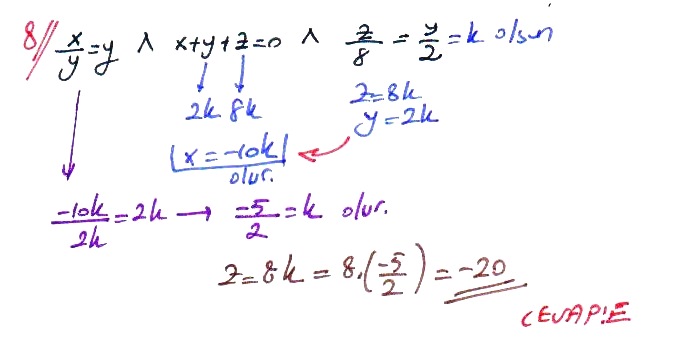 8// x/y = y ∧ x+y+z=0 ∧ z/8 = y/2 = k olsun
2k 8k
z=8k
y=2k
x=-10k
olur.
-10k/2k = 2k → -5/2 = k olur.
z=8k = 8.(-5/2) = -20
CEVAP:E